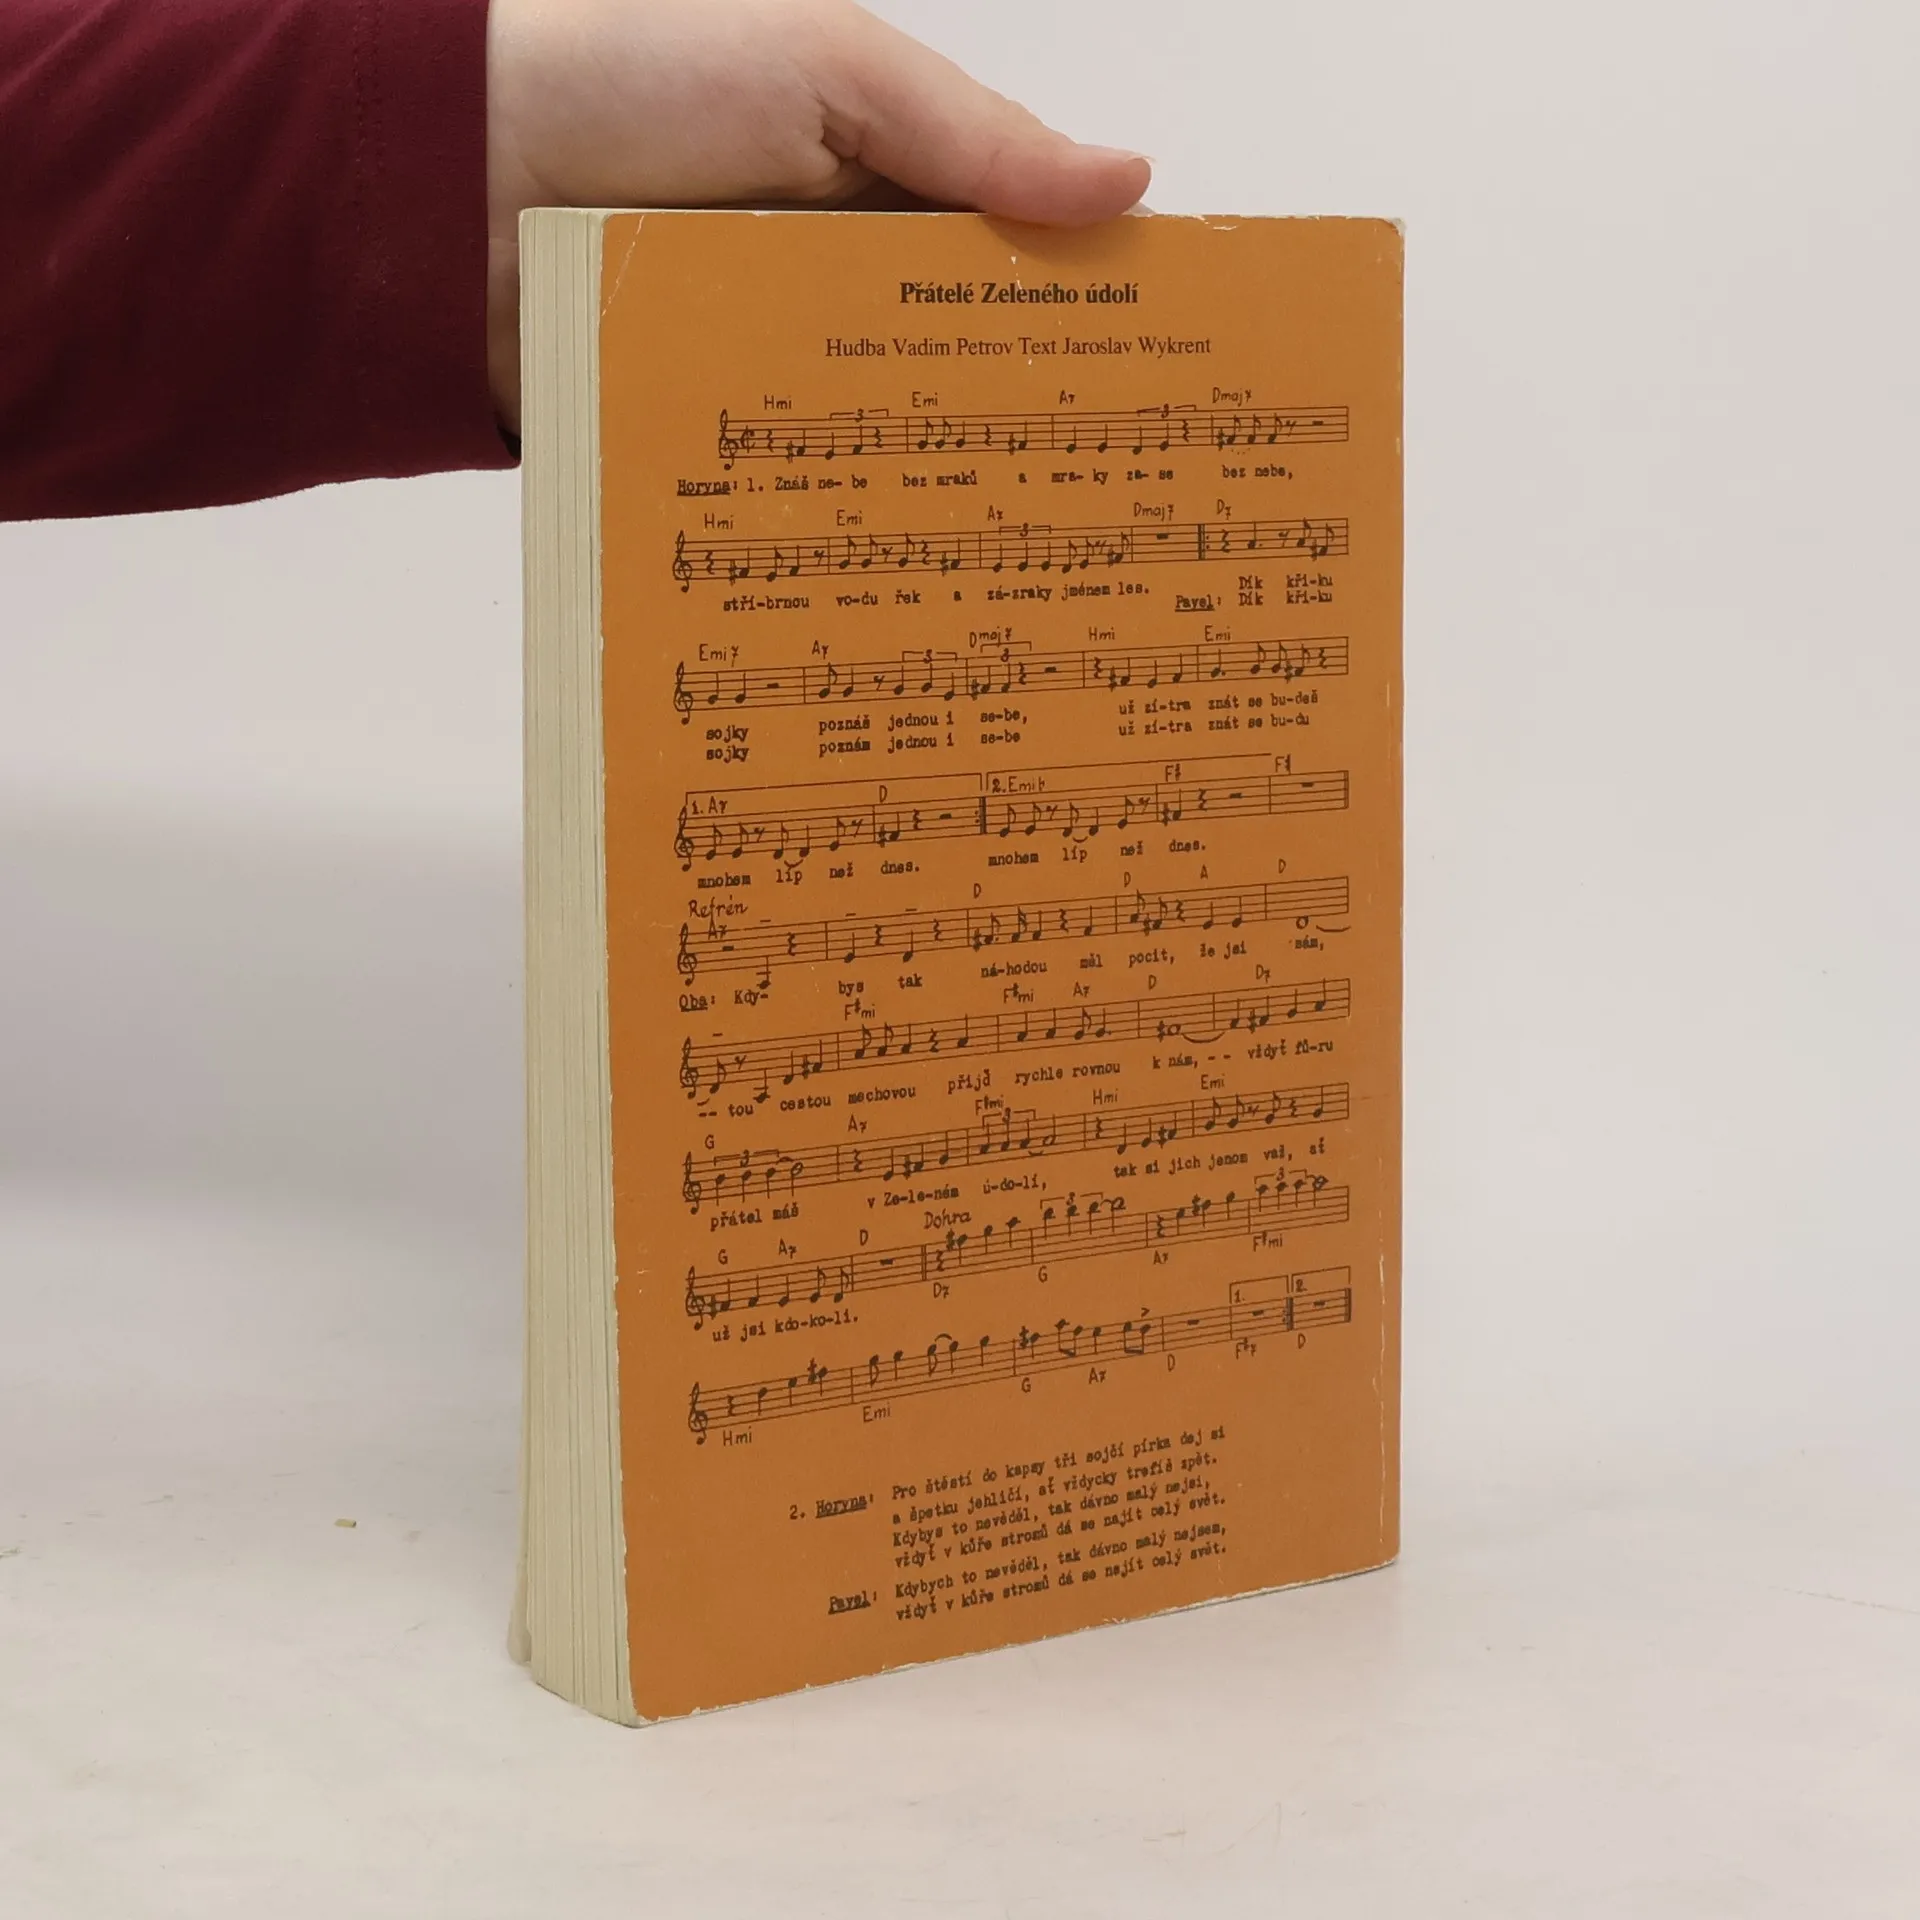 Přátelé Zeleného údolí
Hudba Vadim Petrov Text Jaroslav Wykrent
Hmi Emi A7 Dmaj7
3 3
Horyna: 1. Znáš ne- be bez mraků a mra- ky za- se bez nebe,
Hmi Emi A7 Dmaj7 D7
3
stří-brnou vo-du řek a zá-zraky jménem les. Dík kři-ku
Pavel: Dík kři-ku
Emi7 A7 Dmaj7 Hmi Emi
3 3
sojky poznáš jednou i se-be, už zí-tra znát se bu-deš
sojky poznám jednou i se-be už zí-tra znát se bu-du
1. A7 D 2. Emi F# F#
mnohem líp než dnes. mnohem líp než dnes.
Refrén
A7 D D A D
Oba: Kdy- bys tak ná-hodou měl pocit, že jsi sám,
F#mi F#mi A7 D D7
-- tou cestou mechovou přijď rychle rovnou k nám, - - vždyť fů-ru
G A7 F#mi Hmi Emi
3 3
přátel máš v Ze-le-ném ú-do-lí, tak si jich jenom važ, ať
G A7 D Dohra
3 3
D7 G A7 F#mi
už jsi kdo-ko-li.
1. 2.
Hmi Emi G A7 D F#7 D
2. Horyna: Pro štěstí do kapsy tři sojčí pírka dej si
a špetku jehličí, ať vždycky trefíš zpět.
Kdybys to nevěděl, tak dávno malý nejsi,
vždyť v kůře stromů dá se najít celý svět.
Pavel: Kdybych to nevěděl, tak dávno malý nejsem,
vždyť v kůře stromů dá se najít celý svět.